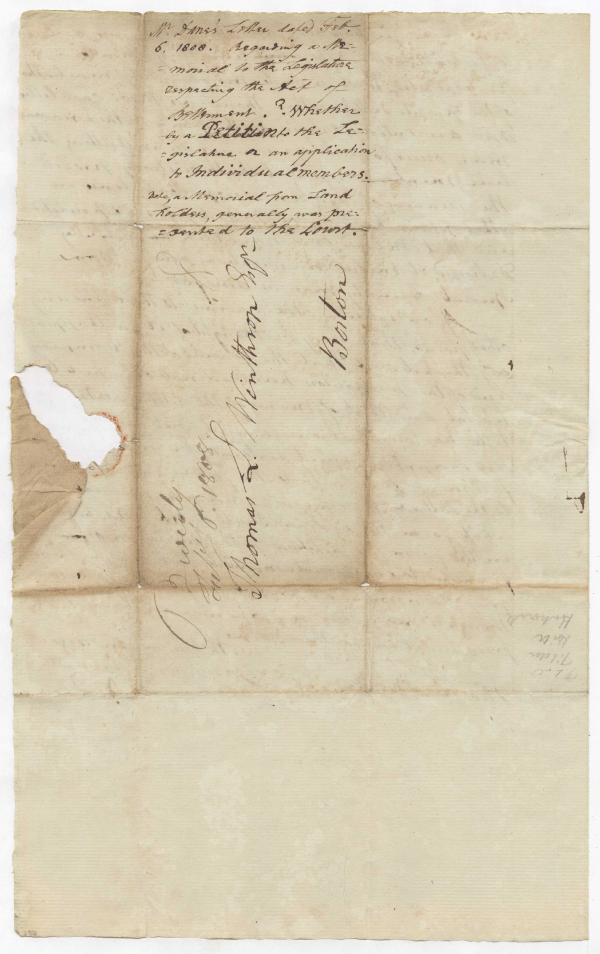 Mr. Dane's Letter dated Feb.
6. 1808. Regarding a Me-
-morial to the Legislature
respecting the Act of
Betterment. Q. Whether
by a Petition to the Le-
-gislature or an application
to Individual members.
Note, a Memorial from Land
holders, generally, was pre-
-sented to the Court.
Beverly
Feby 8. 1808.
Thomas L. Winthrop Esqr
Boston